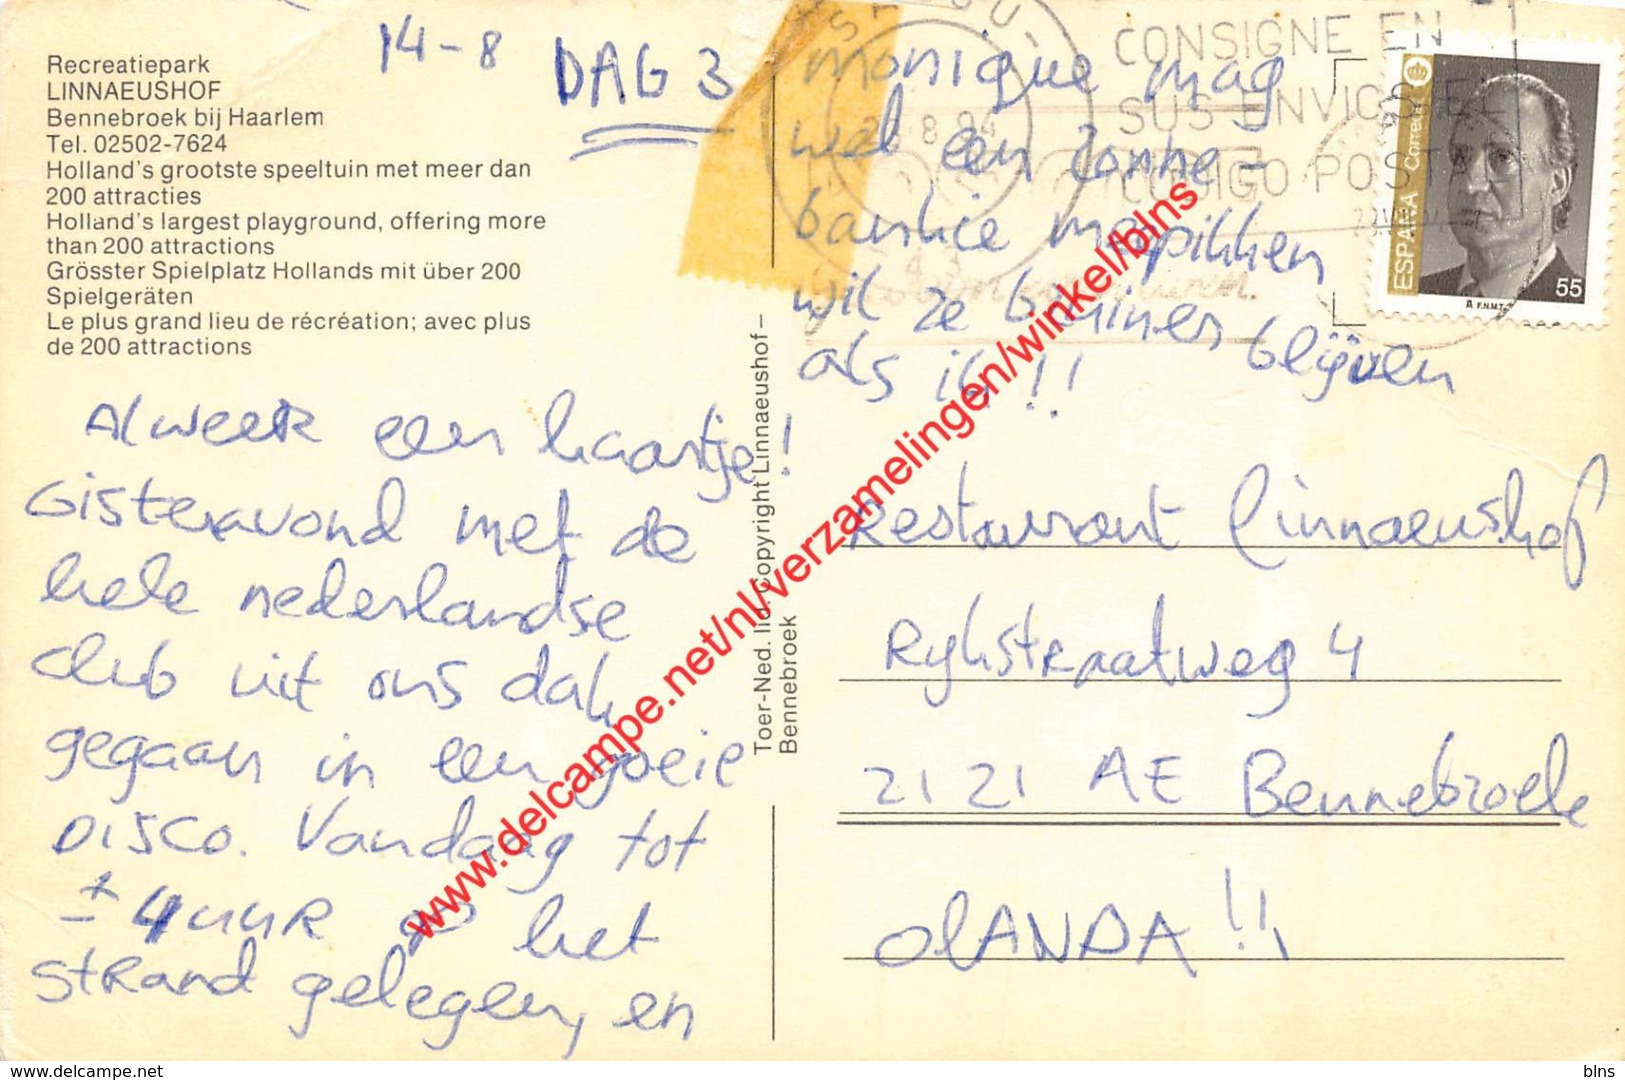 Recreatiepark
LINNAEUSHOF
Bennebroek bij Haarlem
Tel. 02502-7624
Holland's grootste speeltuin met meer dan
200 attracties
Holland's largest playground, offering more
than 200 attractions
Grösster Spielplatz Hollands mit über 200
Spielgeräten
Le plus grand lieu de récréation; avec plus
de 200 attractions
14-8 DAG 3
Alweer een kaartje!
Gisteravond met de
hele nederlandse
club uit ons dak
gegaan in een goeie
Disco. Vandaag tot
± 4 uur op het
strand gelegen, en
monique mag
wel een zonne-
bankje meepikken
wil ze bruiner blijven
als ik!!
CONSIGNE EN
SUS ENVIOS EL
CODIGO POSTAL
8 94
ESPAÑA Correos
55
F.N.M.T.
Toer-Ned. lid. Copyright Linnaeushof –
Bennebroek
Restaurant Linnaeushof
Rijkstraatweg 4
2121 AE Bennebroek
OlANDA!!
www.delcampe.net/nl/verzamelingen/winkel/blns
All rights reserved, delcampe.net
blns